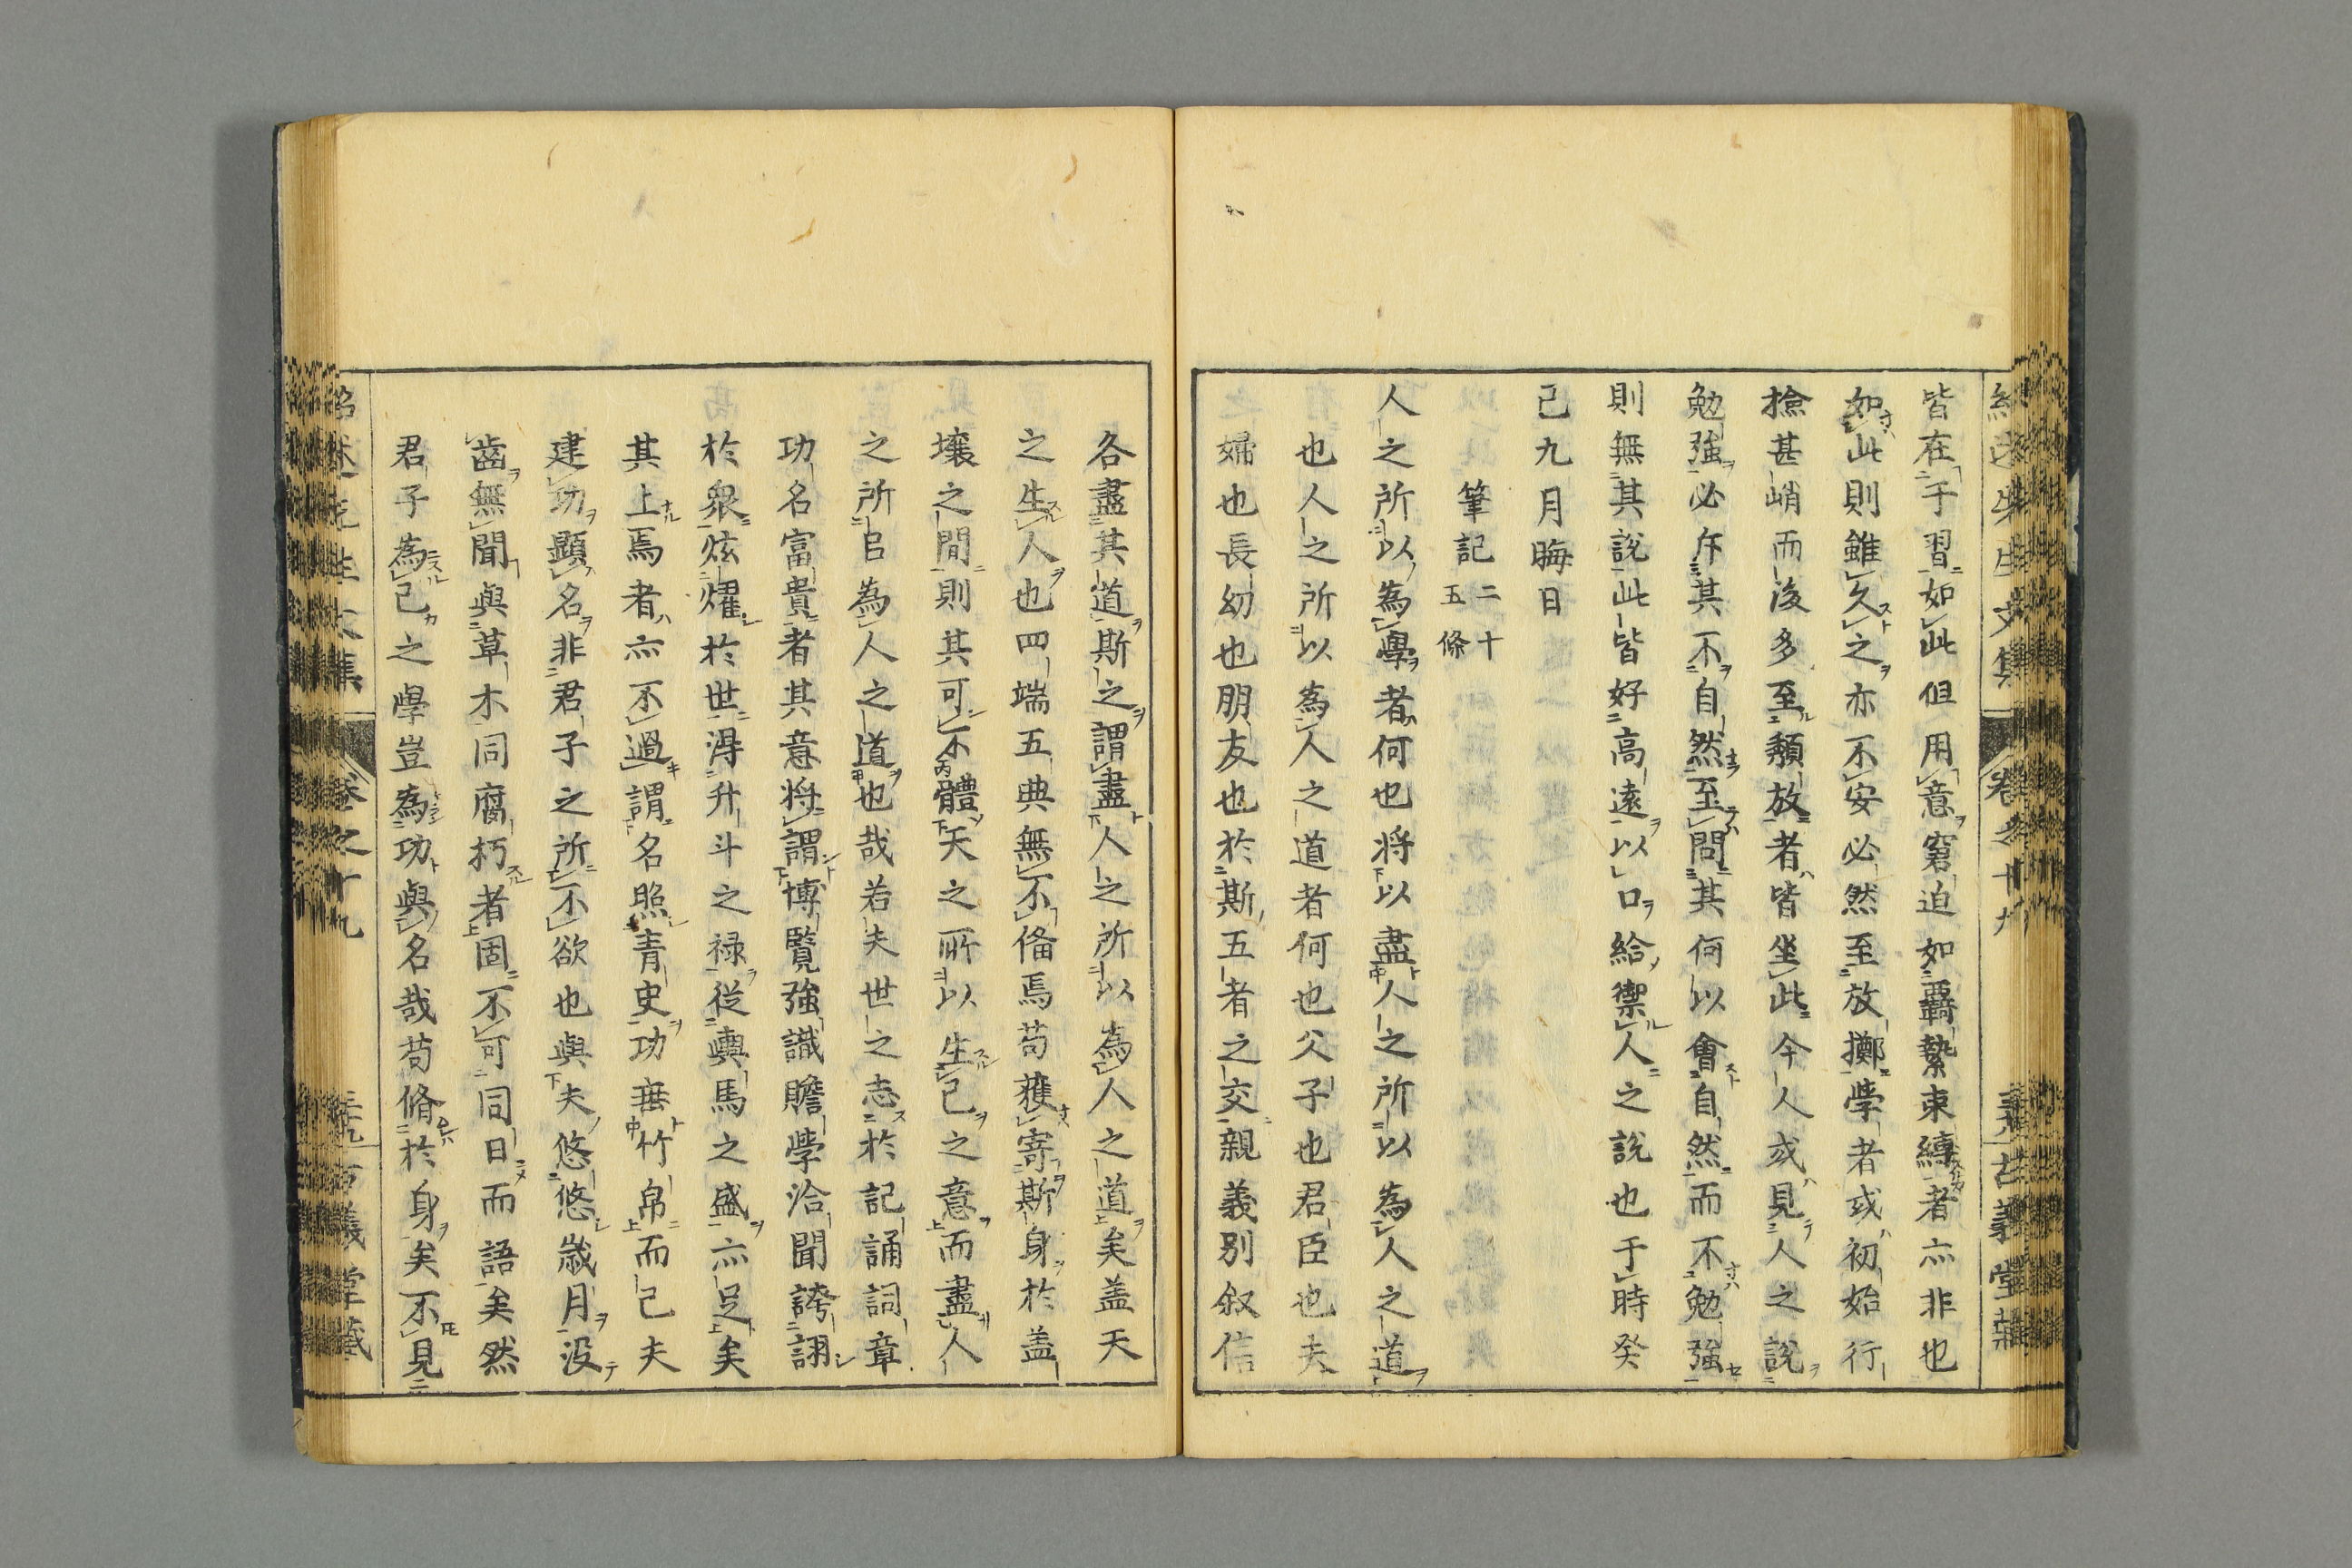 皆在于習如此但用意窘迫如覊縶束縛者亦非也
如此則雖久之亦不安必然至放擲學者或初始行
撿甚峭而後多至頽放者皆坐此今人或見人之說
勉強必斥其不自然至問其何以會自然而不勉強
則無其說此皆好高遠以口給禦人之說也于時癸
己九月晦日
筆記二十五條
人之所以為學者何也将以盡人之所以為人之道
也人之所以為人之道者何也父子也君臣也夫
婦也長幼也朋友也於斯五者之交親義別叙信
各盡其道斯之謂盡人之所以為人之道矣盖天
之生人也四端五典無不俻焉苟獲寄斯身於盖
壤之間則其可不體天之所以生己之意而盡人
之所㠯為人之道也哉若夫世之志於記誦詞章
功名富貴者其意将謂博覽強識贍學洽聞誇詡
於衆炫燿於世得升斗之禄從輿馬之盛亦足矣
其上焉者亦不過謂名照青史功垂竹帛而已夫
建功顯名非君子之所不欲也與夫悠悠歳月没
齒無聞與草木同腐朽者固不可同日而語矣然
君子為己之學豈為功與名哉苟脩於身矣不見
卷之十九
古義堂藏